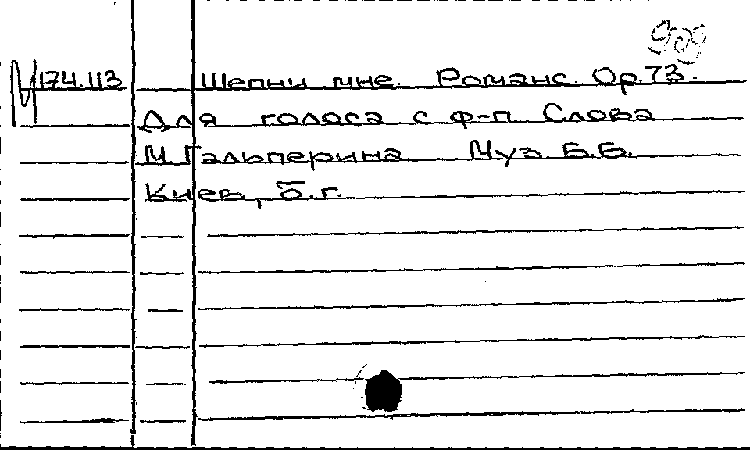 909
М 174.113 Шепни мне. Романс. Op. 73.
Для голоса с ф-п. Слова
М. Гальперина Муз. Б.Б.
Киев, б.г.